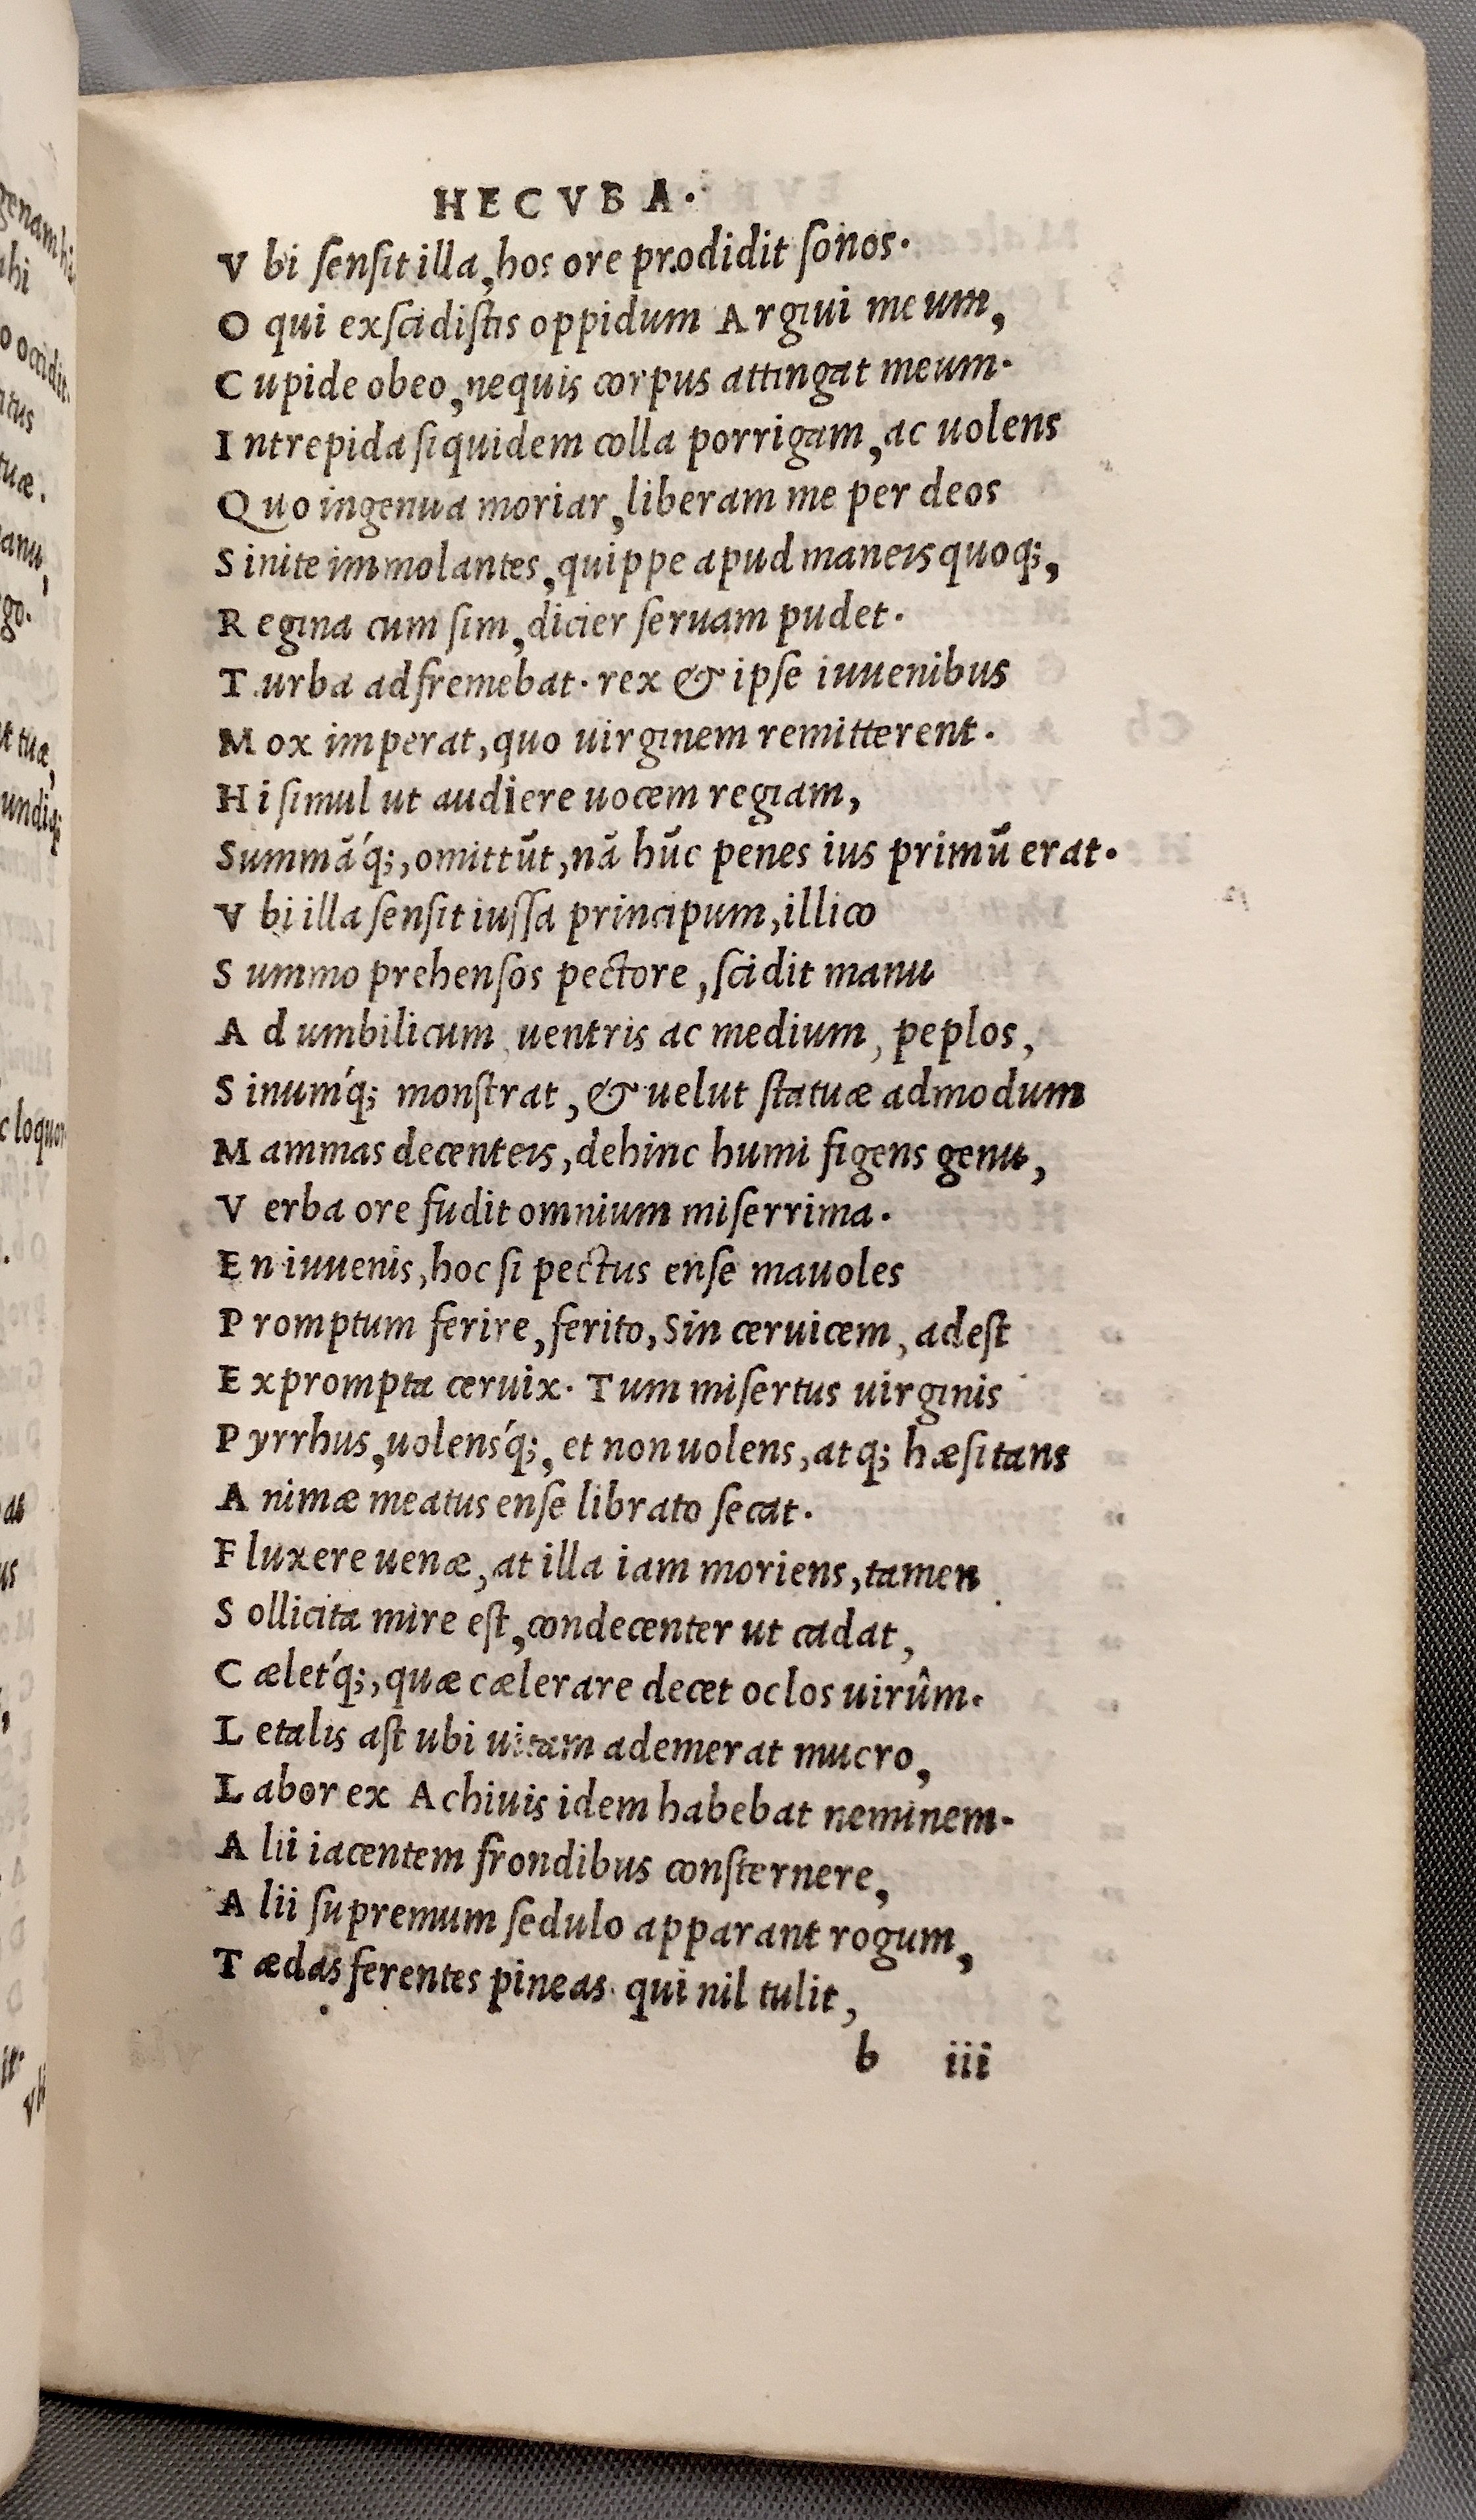 HECVBA.
V bi senſit illa, hos ore prodidit ſonos.
O qui exſcidiſtis oppidum Argiui meum,
C upide obeo, nequis corpus attingat meum.
I ntrepida ſiquidem colla porrigam, ac uolens
Q uo ingenua moriar, liberam me per deos
S inite immolantes, quippe apud maneis quoq;,
R egina cum ſim, dicier ſeruam pudet.
T urba adfremebat. rex & ipſe iuuenibus
M ox imperat, quo uirginem remitterent.
H i ſimul ut audiere uocem regiam,
Summāq́;, omittūt, nā hūc penes ius primū erat.
V bi illa ſenſit iuſſa principum, illico
S ummo prehenſos pectore, ſcidit manu
A d umbilicum uentris ac medium, peplos,
S inumq́; monſtrat, & uelut ſtatuæ admodum
M ammas decenteis, dehinc humi figens genu,
V erba ore fudit omnium miſerrima.
E n iuuenis, hoc ſi pectus enſe mauoles
P romptum ferire, ferito, Sin ceruicem, adeſt
E xprompta ceruix. Tum miſertus uirginis
P yrrhus, uolensq́;, et non uolens, atq; hæſitans
A nimæ meatus enſe librato ſecat.
F luxere uenæ, at illa iam moriens, tamen
S ollicita mire eſt, condecenter ut cadat,
C æletq́;, quæ cælerare decet oclos uirûm.
L etalis aſt ubi uitam ademerat mucro,
L abor ex Achiuis idem habebat neminem.
A lii iacentem frondibus conſternere,
A lii ſupremum ſedulo apparant rogum,
T ædas ferentes pineas. qui nil tulit,
b iii